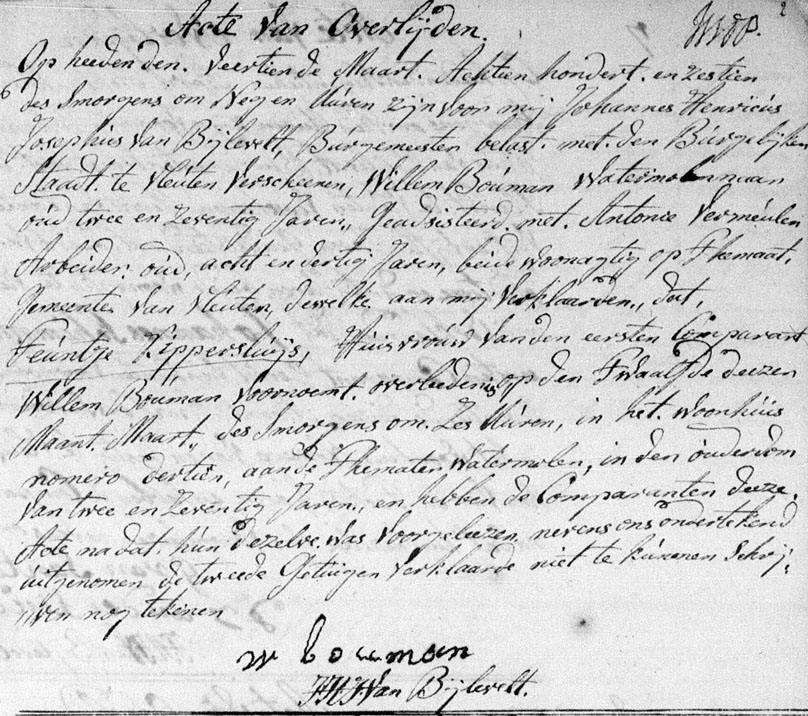 Acte van Overlijden.
Op heeden den. Veertiende Maart. Achtien hondert. en zestien
des Smorgens om Negen Uúren zijn voor mij Johannes Henricús
Josephús van Bijlevelt, Búrgemeester belast. met. den Búrgelijken
Staadt. te Vleúten Verscheenen, Willem Boúman Watermolenaar
oúd twee en Zeventig Jaren,, Geadsisteerd. met. Antonie Verméulen
Arbeider, oúd, acht en dertig Jaren, beide woonagtig op Themaat,
Gemeente van Vleúten, dewelke aan mij Verklaarden,, dat,
Feúntje Kippersluijs, Húisvroúw van den eersten Comparant
Willem Boúman Voornoemt. overleeden is op den Twaalfde deezen
Maant. Maart,, des Smorgens om. Zes Uúren, in het. Woonhúis
nomero dertien, aan de Themater Watermolen, in den oúderdom
van twee en Zeventig Jaren,, en hebben de Comparanten deeze.
Acte na dat. hún dezelve was Voorgeleezen, nevens ons ondertekend
úitgenomen de tweede Getúigen Verklaarde niet te kúnnen Schrij,
,,ven nog tekenen
w bouman
JHJ Van Bijlevelt.